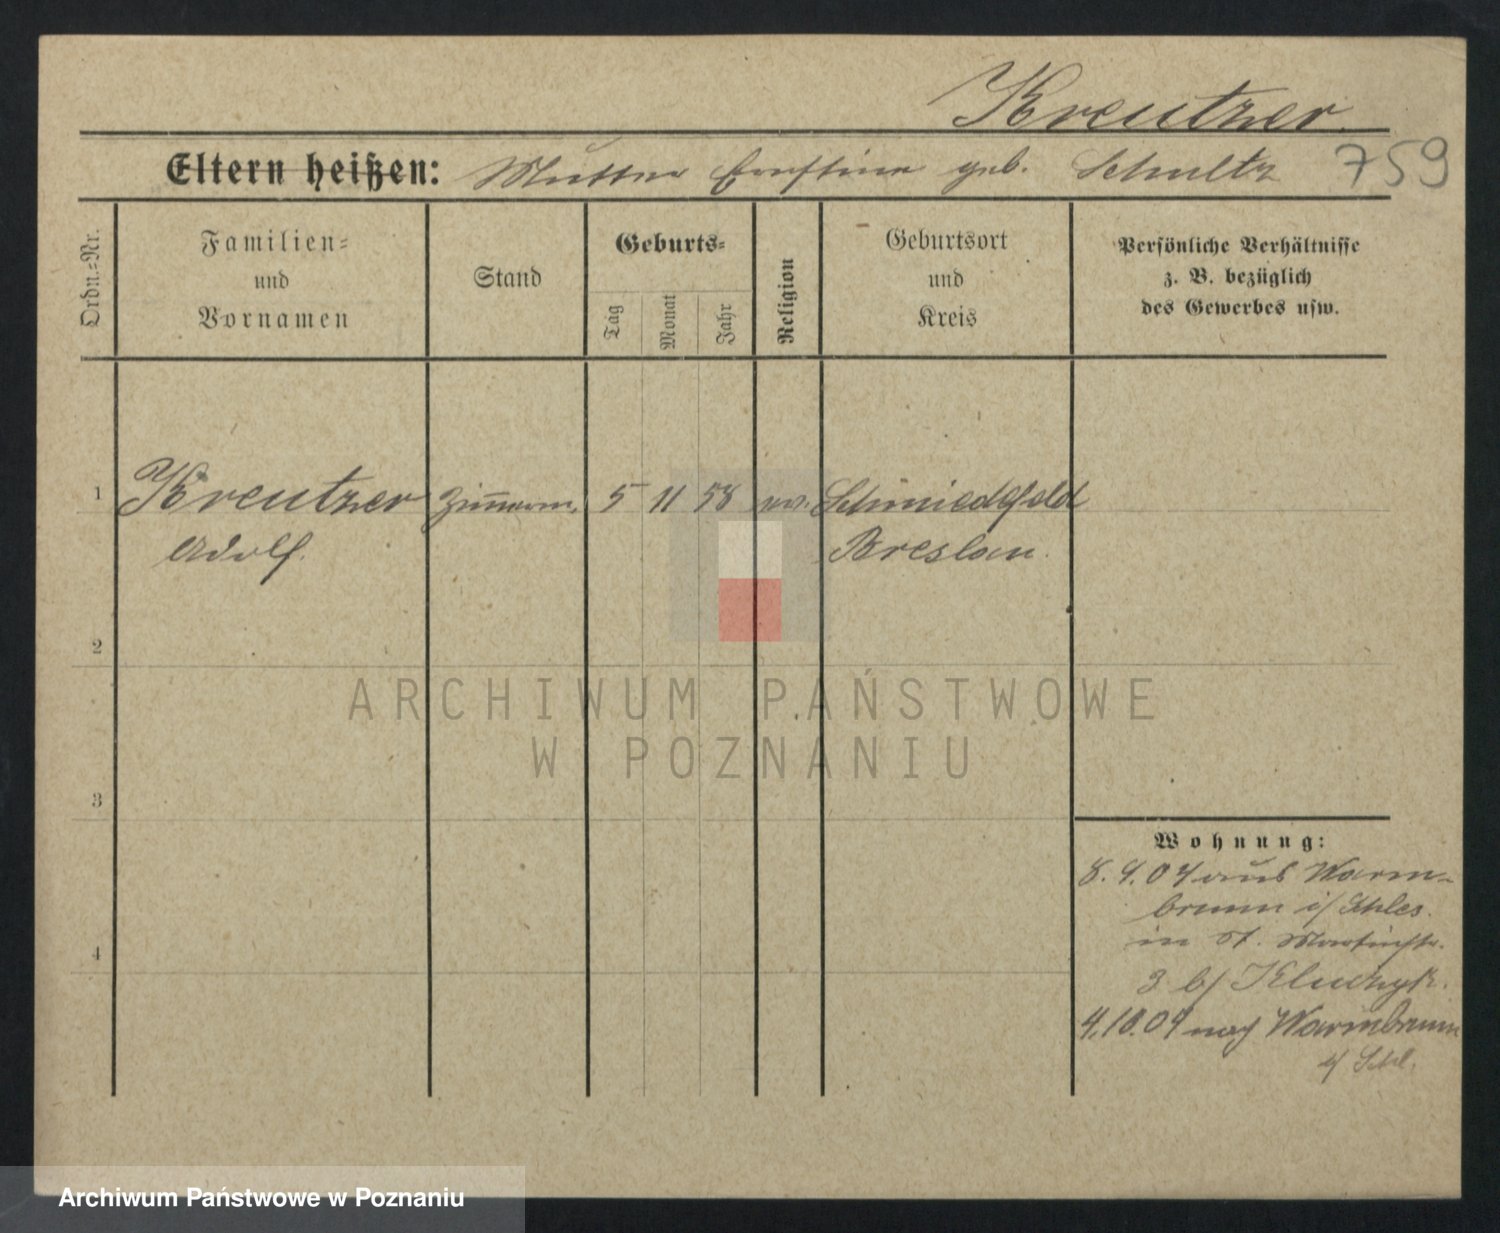 Kreutzer.
Eltern heißen: Mutter Ernstine geb. Schultz 759
Ordn.=Nr.
Familien=
und
Vornamen
Stand
Geburts=
Tag
Monat
Jahr
Religion
Geburtsort
und
Kreis
Persönliche Verhältnisse
z. B. bezüglich
des Gewerbes usw.
1 Kreutzer Zimmerm. 5 11 58 ev. Schmiedefeld
Adolf. Breslau.
2
3
4
Wohnung:
8.4.04 aus Warm-
brunn i/ Schles.
in St. Martinstr.
3 b/
4.10.04 nach Warmbrunn
i/ Schl.
ARCHIWUM PAŃSTWOWE
W POZNANIU
Archiwum Państwowe w Poznaniu